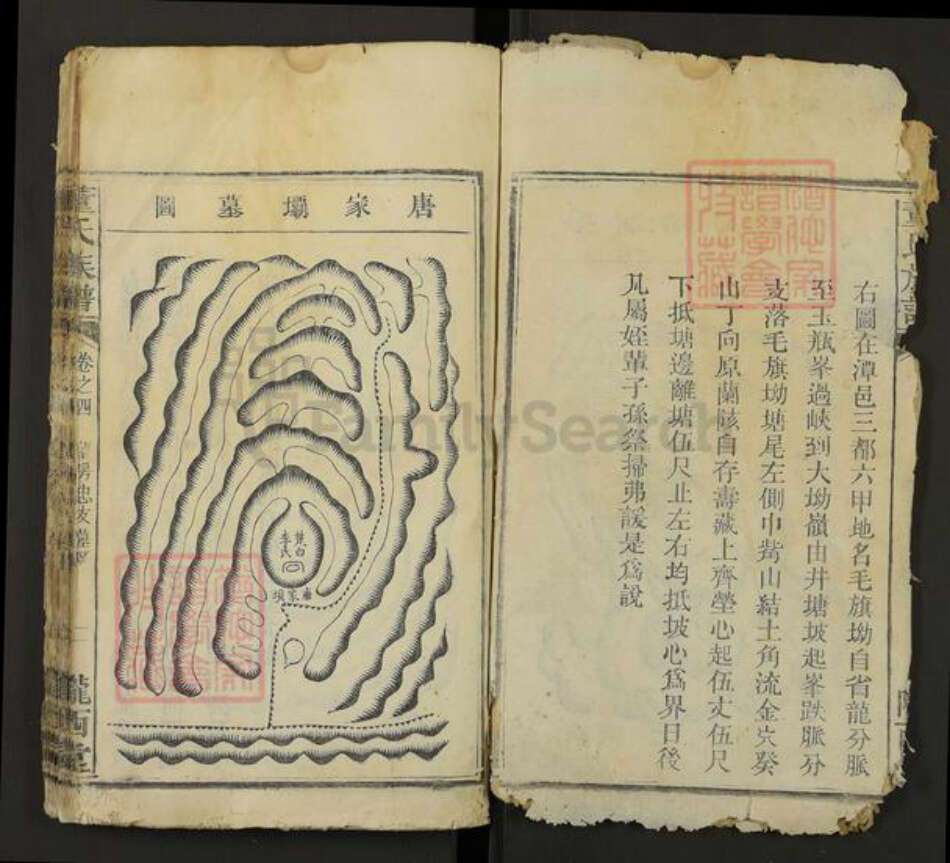 右圖在潭邑三都六甲地名毛旗坳自省龍分脈
至玉瓶峯過峽到大坳嶺由井塘坡起峯跌脈分
支落毛旗坳塘尾左側巾山結土角流金穴癸
山丁向原蘭陔自存壽藏上齊塋心起伍丈伍尺
下抵塘邊離塘伍尺止左右均抵坡心為界日後
凡屬姪輩子孫祭掃弗諼是為說
唐家壩墓圖
楚白
李氏
唐家壩
族譜
卷之四
隴西堂
FamilySearch